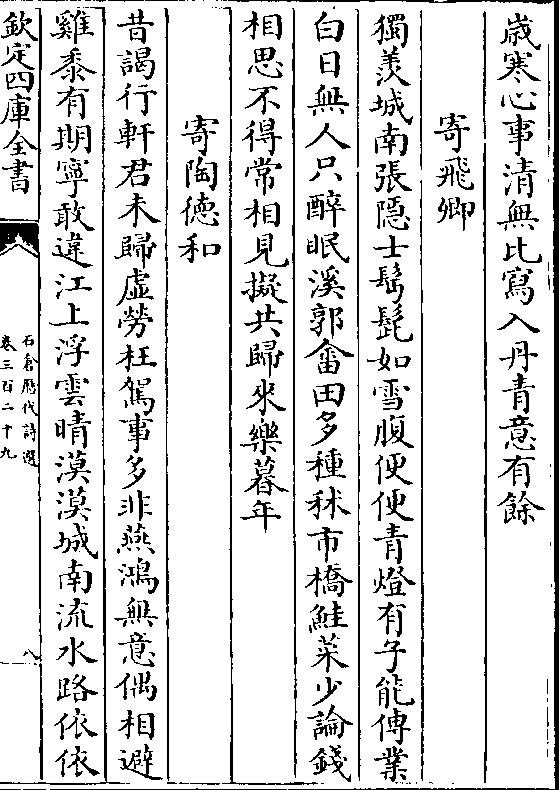 歳寒心事清無比寫入丹青意有餘
寄飛卿
獨羡城南張隠士鬅髭如雪腹便便青燈有子能傳業
白日無人只醉眠溪郭畬田多種秫市橋鮭菜少論錢
相思不得常相見擬共歸來樂暮年
寄陶徳和
昔謁行軒君未歸虛勞枉駕事多非燕鴻無意偶相避
雞黍有期寧敢違江上浮雲晴漠漠城南流水路依依
欽定四庫全書
石倉歴代詩選
卷三百二十九
八